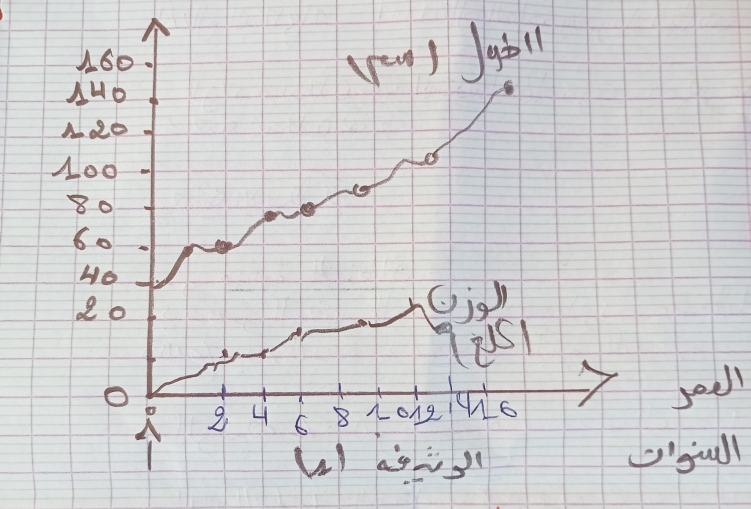 الطول (سم)
160
140
120
100
80
60
40
20
0
الوزن
(كلغ)
2 4 6 8 10 12 14 16
العمر
السنوات
الوثيقة